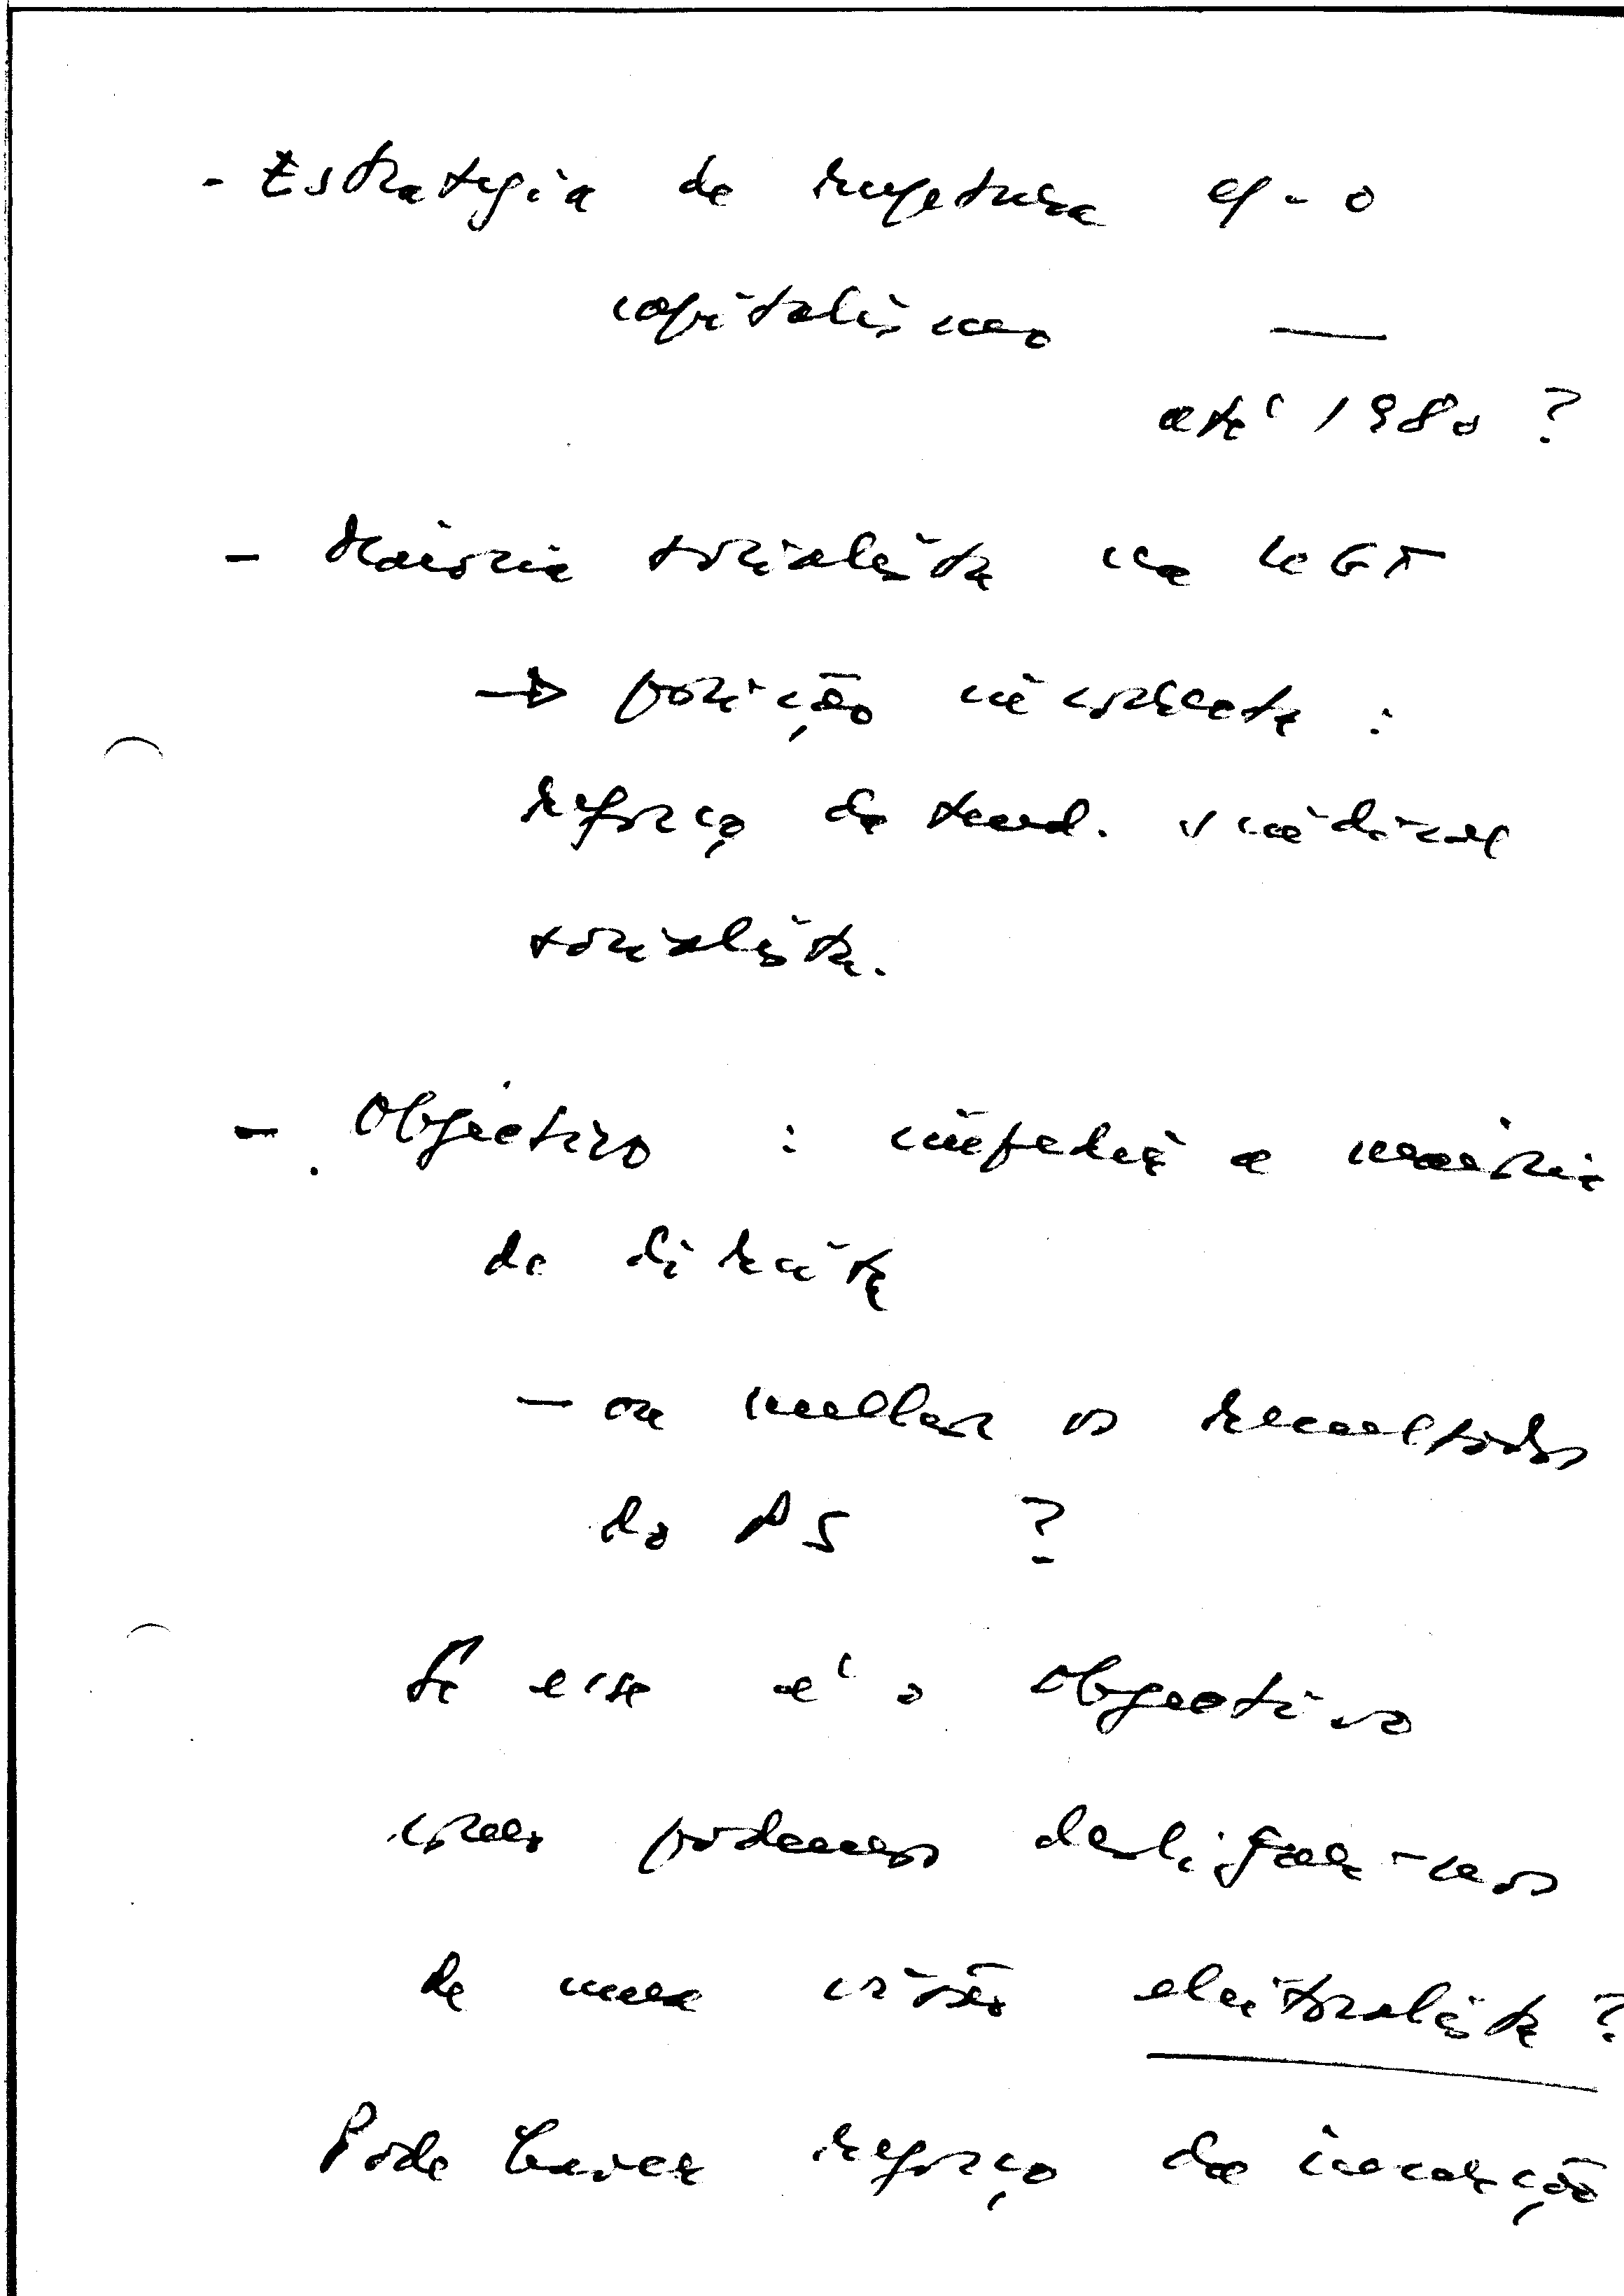 - Estrategia de ruptura c/ - o
capitalismo —
até 1980 ?
- Maioria socialista na UGT
→ posição incorrecta :
reforço da tend. sindical
socialista.
- Objectivo : impedir a maioria
da direita
- ou melhor os resultados
do PS ?
Se esse é o objectivo
como podemos desligar-nos
de uma visão eleitoralista ?
Pode haver reforço da inserção